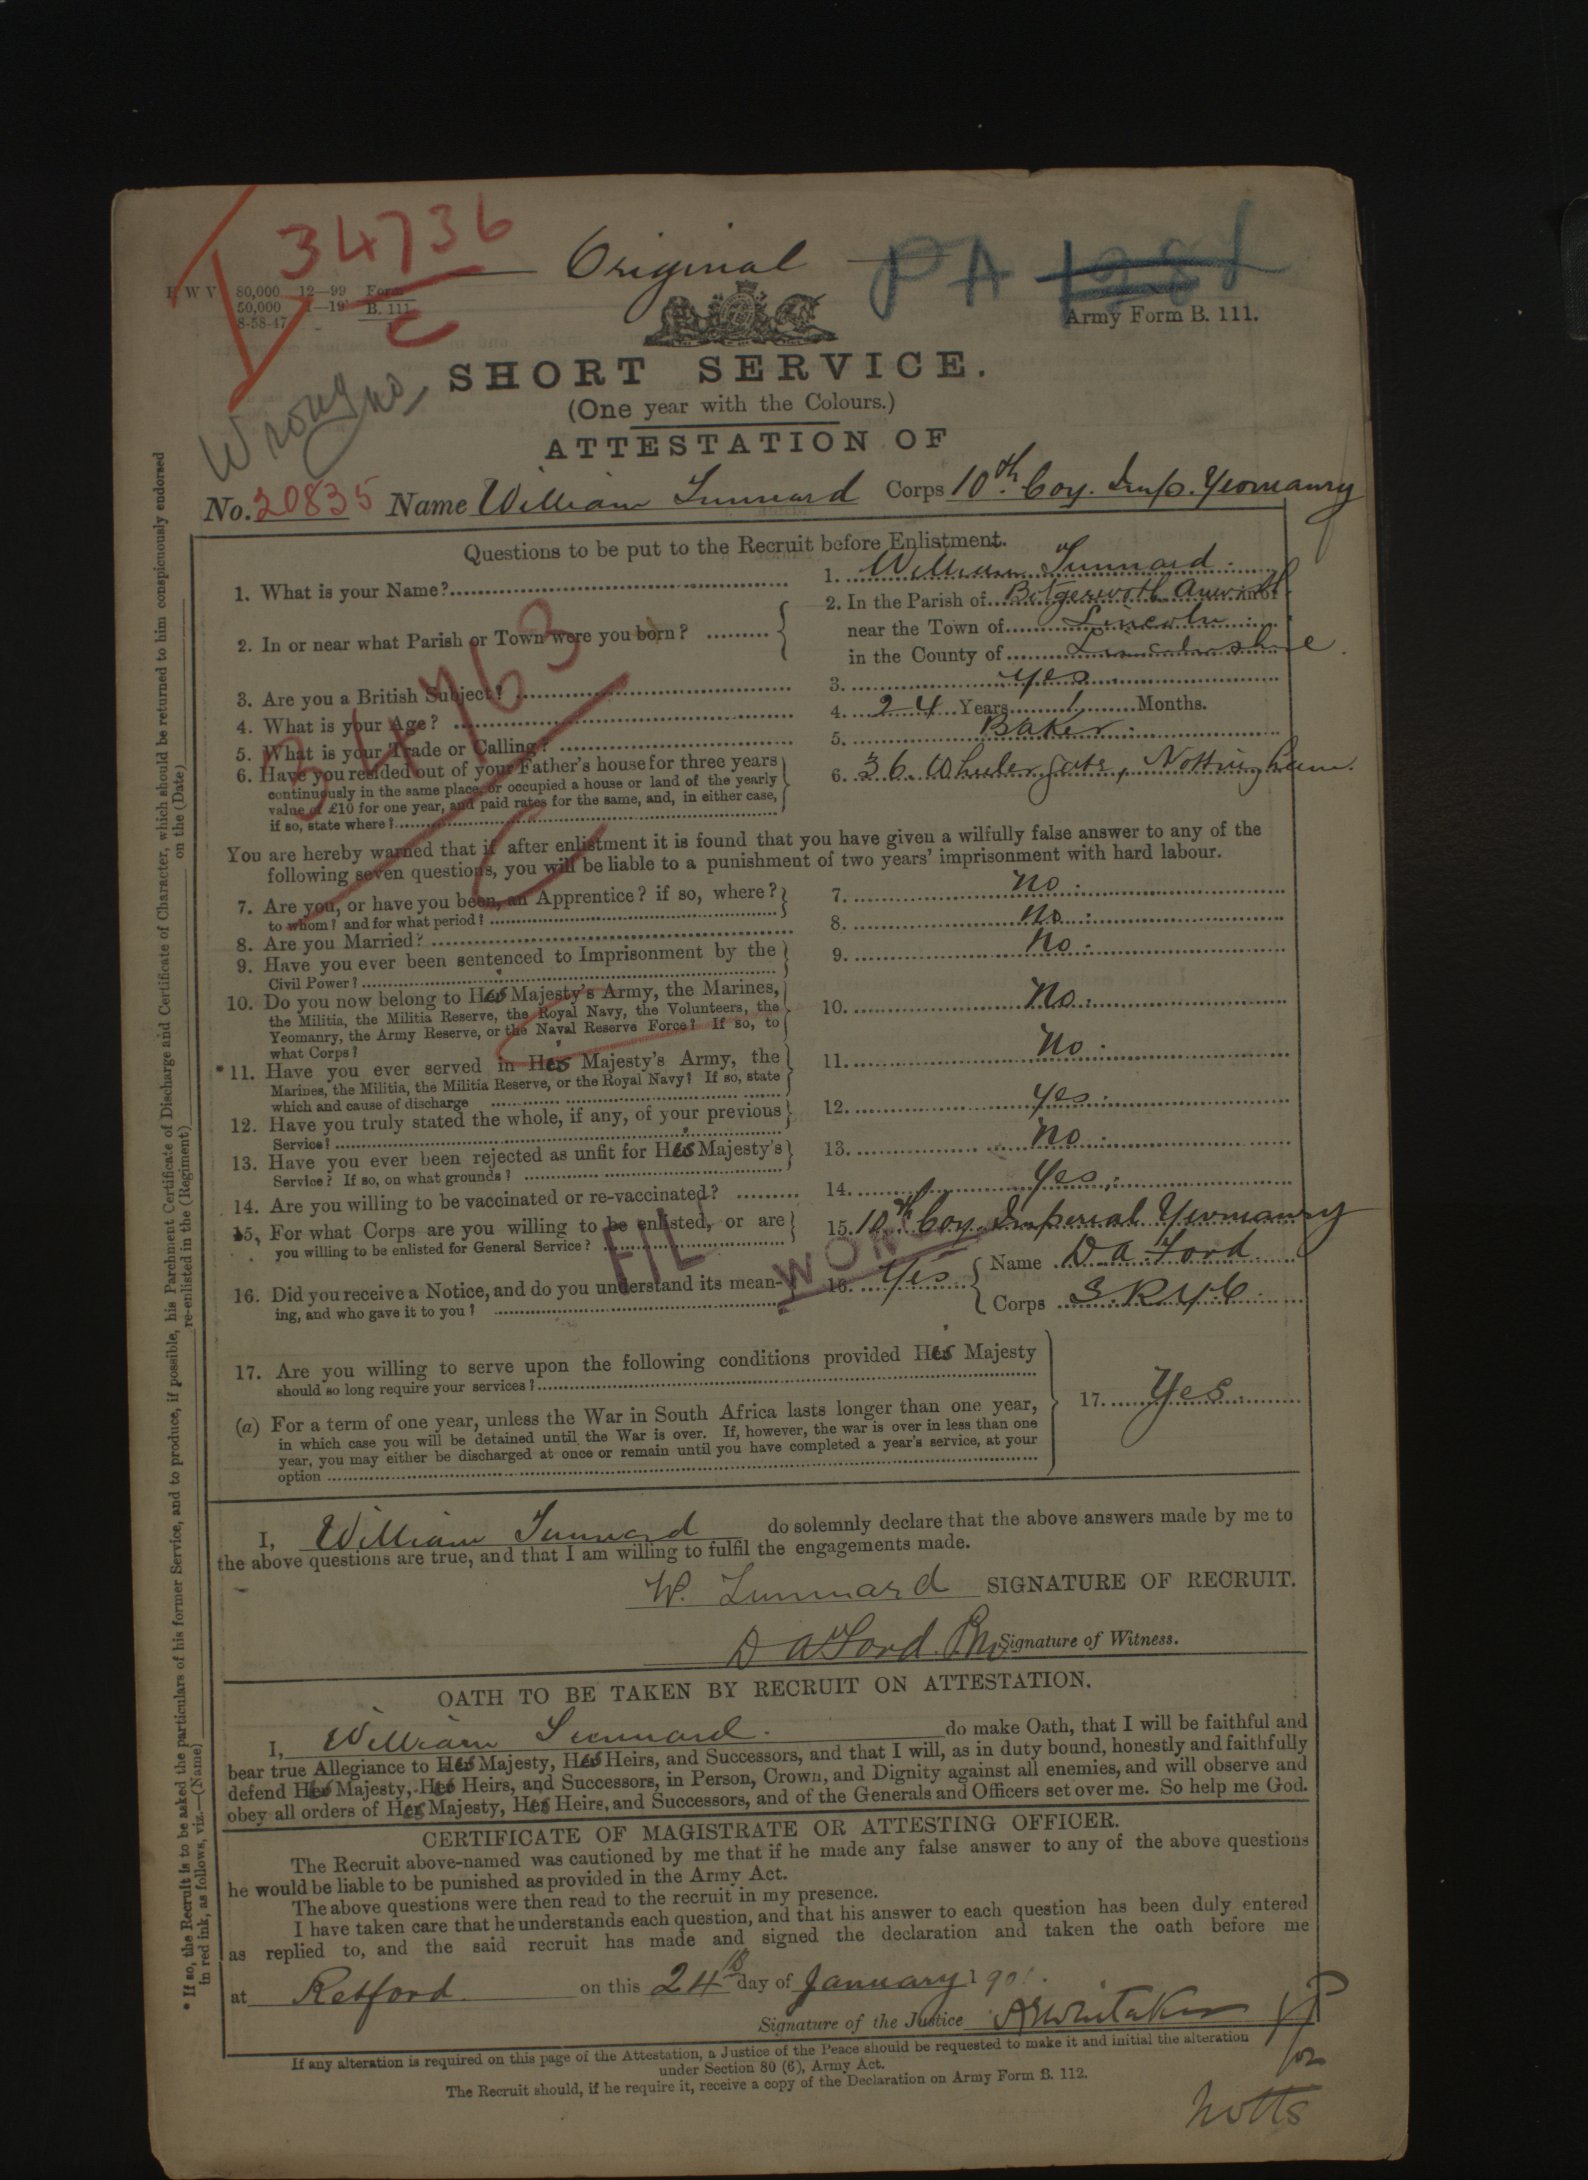 34736
C
Original
PA 1981
F W V 80,000 12—99 Form
50,000 1—19 B. 111
8-58-47 1
Army Form B. 111.
SHORT SERVICE.
(One year with the Colours.)
ATTESTATION OF
Wrong no
No. 20835 Name William Tunnard Corps 10th Coy. Imp. Yeomanry
Questions to be put to the Recruit before Enlistment.
1. What is your Name? 1. William Tunnard
2. In or near what Parish or Town were you born? 2. In the Parish of
near the Town of Lincoln
in the County of Lincolnshire
3. Are you a British Subject? 3. Yes
4. What is your Age? 4. 24 Years 1 Months.
5. What is your Trade or Calling? 5. Baker
6. Have you resided out of your Father's house for three years 6. 36 Wheeler gate, Nottingham.
continuously in the same place, or occupied a house or land of the yearly
value of £10 for one year, and paid rates for the same, and, in either case,
if so, state where?
34763
C
You are hereby warned that if after enlistment it is found that you have given a wilfully false answer to any of the
following seven questions, you will be liable to a punishment of two years' imprisonment with hard labour.
7. Are you, or have you been, an Apprentice? if so, where? 7. No
to whom? and for what period?
8. Are you Married? 8. No
9. Have you ever been sentenced to Imprisonment by the 9. No
Civil Power?
10. Do you now belong to His Majesty's Army, the Marines, 10. No
the Militia, the Militia Reserve, the Royal Navy, the Volunteers, the
Yeomanry, the Army Reserve, or the Naval Reserve Force? If so, to
what Corps?
* 11. Have you ever served in His Majesty's Army, the 11. No
Marines, the Militia, the Militia Reserve, or the Royal Navy? If so, state
which and cause of discharge
12. Have you truly stated the whole, if any, of your previous 12. Yes
Service?
13. Have you ever been rejected as unfit for His Majesty's 13. No
Service? If so, on what grounds?
14. Are you willing to be vaccinated or re-vaccinated? 14. Yes
15. For what Corps are you willing to be enlisted, or are 15. 10th Coy. Imperial Yeomanry
you willing to be enlisted for General Service?
16. Did you receive a Notice, and do you understand its mean- 16. Yes Name D A Ford
ing, and who gave it to you? Corps S.R.Y.C
17. Are you willing to serve upon the following conditions provided His Majesty
should so long require your services? 17. Yes
(a) For a term of one year, unless the War in South Africa lasts longer than one year,
in which case you will be detained until the War is over. If, however, the war is over in less than one
year, you may either be discharged at once or remain until you have completed a year's service, at your
option
I, William Tunnard do solemnly declare that the above answers made by me to
the above questions are true, and that I am willing to fulfil the engagements made.
W. Tunnard SIGNATURE OF RECRUIT.
D A Ford Signature of Witness.
OATH TO BE TAKEN BY RECRUIT ON ATTESTATION.
I, William Tunnard. do make Oath, that I will be faithful and
bear true Allegiance to His Majesty, His Heirs, and Successors, and that I will, as in duty bound, honestly and faithfully
defend His Majesty, His Heirs, and Successors, in Person, Crown, and Dignity against all enemies, and will observe and
obey all orders of His Majesty, His Heirs, and Successors, and of the Generals and Officers set over me. So help me God.
CERTIFICATE OF MAGISTRATE OR ATTESTING OFFICER.
The Recruit above-named was cautioned by me that if he made any false answer to any of the above questions
he would be liable to be punished as provided in the Army Act.
The above questions were then read to the recruit in my presence.
I have taken care that he understands each question, and that his answer to each question has been duly entered
as replied to, and the said recruit has made and signed the declaration and taken the oath before me
at Retford on this 24th day of January 1901.
Signature of the Justice A E Whitaker JP
for
Notts
If any alteration is required on this page of the Attestation, a Justice of the Peace should be requested to make it and initial the alteration
under Section 80 (6), Army Act.
The Recruit should, if he require it, receive a copy of the Declaration on Army Form B. 112.
* If so, the Recruit is to be asked the particulars of his former Service, and to produce, if possible, his Parchment Certificate of Discharge and Certificate of Character, which should be returned to him conspicuously endorsed
in red ink, as follows, viz.—(Name) re-enlisted in the (Regiment) on the (Date)